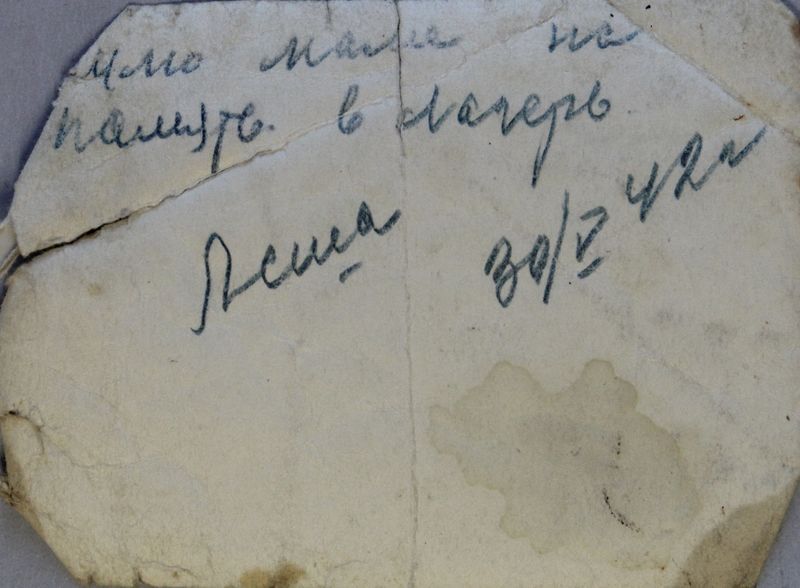 маме на
память в лагерь
Леша 30/V 42 г